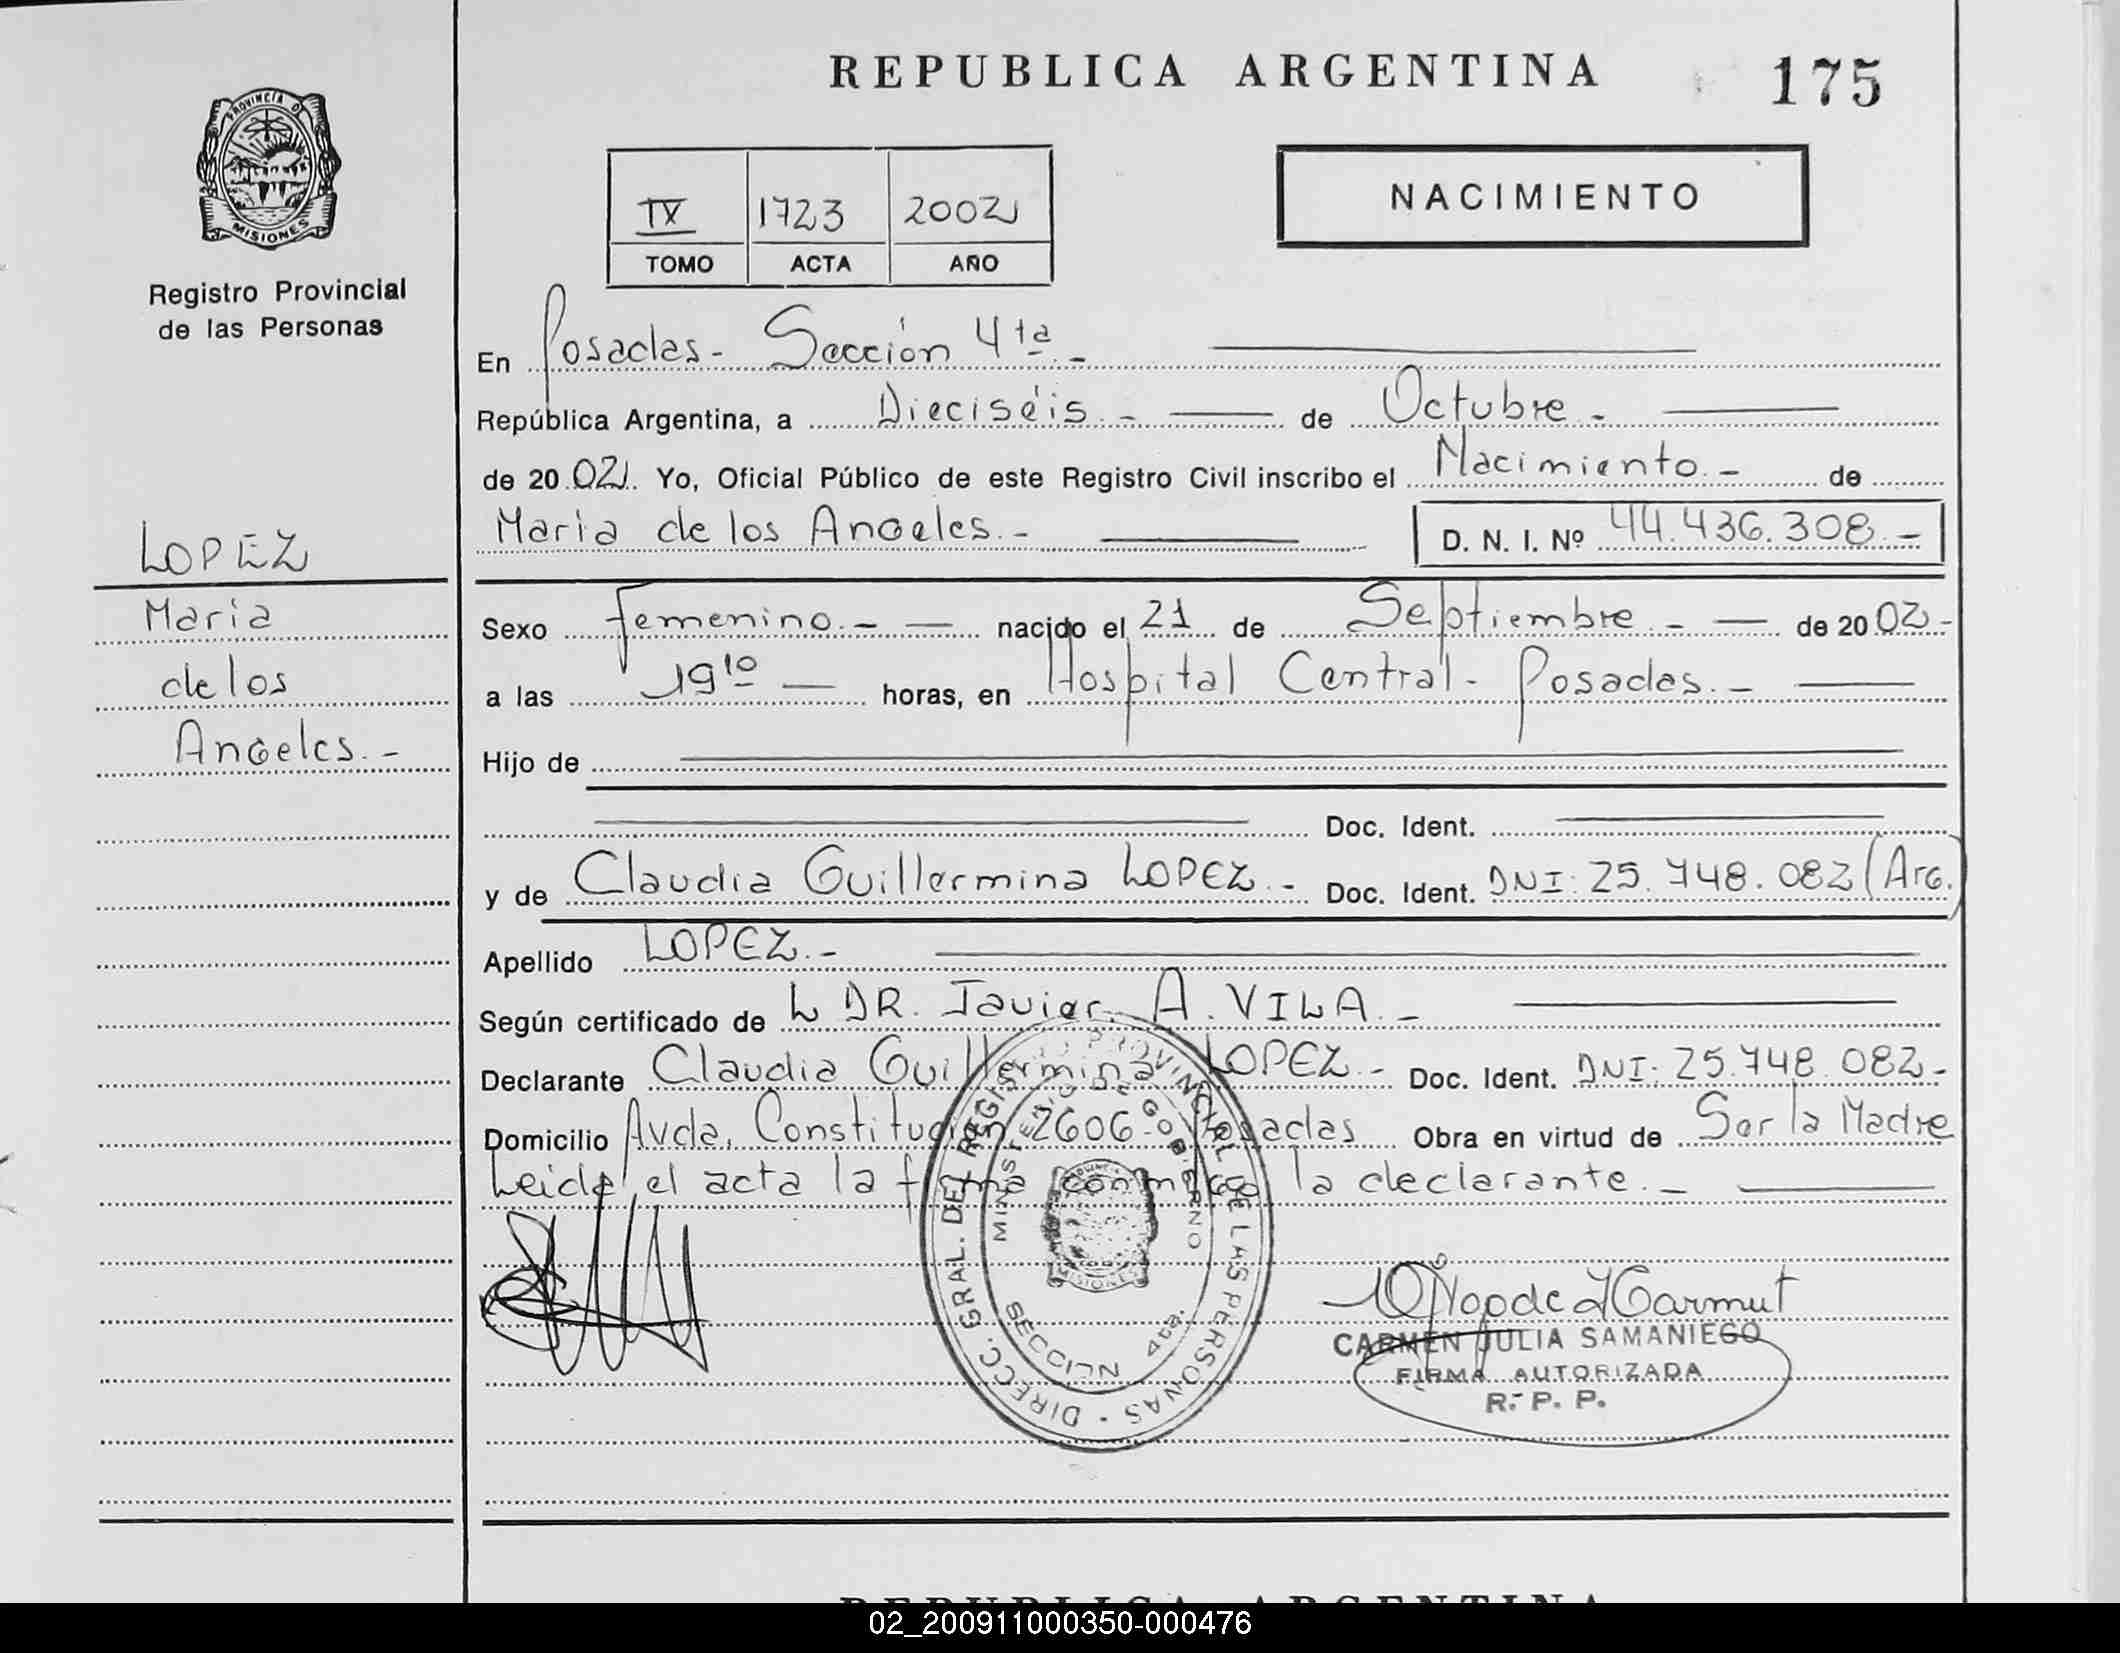 REPUBLICA ARGENTINA 175
PROVINCIA DE
MISIONES
Registro Provincial
de las Personas
IX 1723 2002
TOMO ACTA AÑO
NACIMIENTO
En Posadas - Sección 4ta -
República Argentina, a Dieciséis. - de Octubre -
de 20 02. Yo, Oficial Público de este Registro Civil inscribo el Nacimiento - de
Maria de los Angeles. - D. N. I. Nº 44.436.308 -
LOPEZ
Maria
de los
Angeles. -
Sexo Femenino. - nacido el 21 de Septiembre - de 20 02 -
a las 19 10 horas, en Hospital Central - Posadas. -
Hijo de
Doc. Ident.
y de Claudia Guillermina LOPEZ. - Doc. Ident. DNI: 25.748.082 (Arg.)
Apellido LOPEZ. -
Según certificado de L DR. Javier A. VILA. -
Declarante Claudia Guillermina LOPEZ - Doc. Ident. DNI: 25.748.082 -
Domicilio Avda. Constitución 2606 - Posadas Obra en virtud de Ser la Madre
Leida el acta la firma conmigo la declarante. -
DIRECC. GRAL. DEL REGISTRO PROVINCIAL DE LAS PERSONAS
MINISTERIO DE GOBIERNO
MISIONES
SECCION 4ta.
CARMEN JULIA SAMANIEGO
FIRMA AUTORIZADA
R. P. P.
REPUBLICA ARGENTINA
02_200911000350-000476